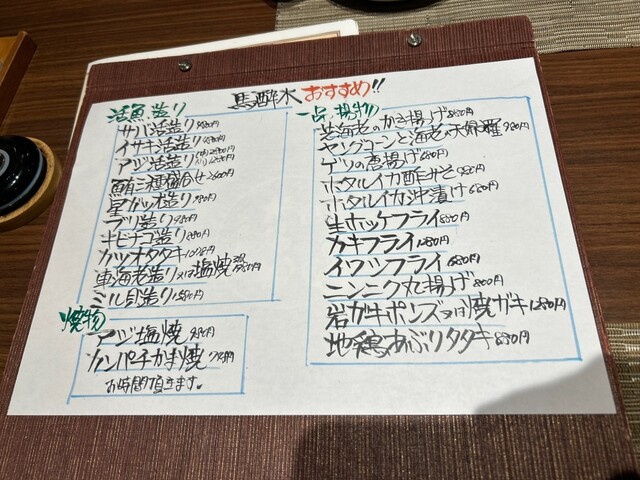 馬酔木 おすすめ!!
活魚造り
サバ活造り 980円
イサキ活造り
アジ活造り
鮪三種盛合せ
黒ガッパ造り 980円
ブリ造り 980円
キビナゴ造り 880円
カツオタタキ
車海老造り又は塩焼
ミル貝造り 1580円
焼物
アジ塩焼 980円
カンパチかま焼
お時間頂きます。
一品・揚物
芝海老のかき揚げ 880円
ヤングコーンと海老の天婦羅 980円
ゲソの唐揚げ 680円
ホタルイカ酢みそ
ホタルイカ沖漬け 680円
生ホッケフライ 880円
カキフライ 1280円
イワシフライ 680円
ニンニク丸揚げ 800円
岩ガキポンズ又は焼ガキ 1280円
地鶏あぶりタタキ 880円